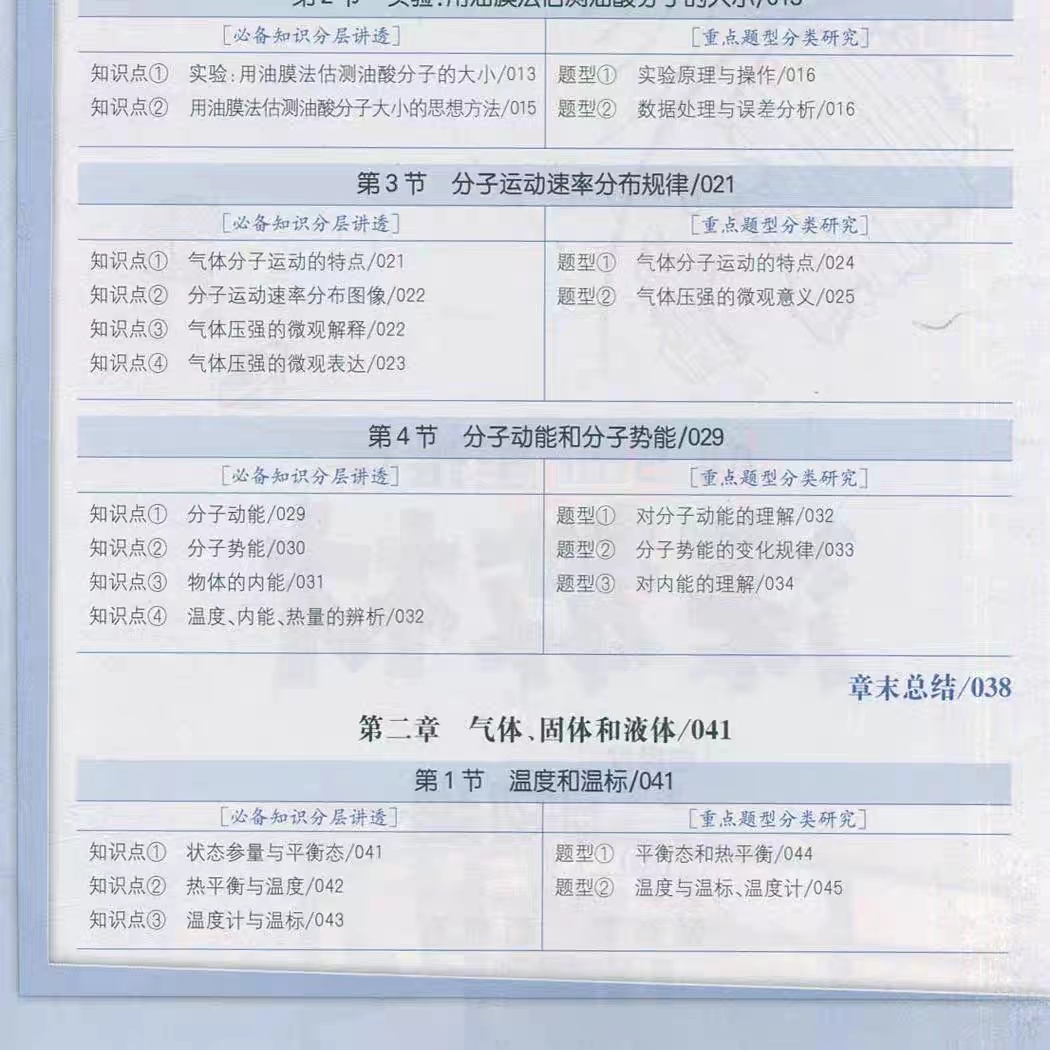 第2节 实验:用油膜法估测油酸分子的大小/013
[必备知识分层讲透] [重点题型分类研究]
知识点① 实验:用油膜法估测油酸分子的大小/013 题型① 实验原理与操作/016
知识点② 用油膜法估测油酸分子大小的思想方法/015 题型② 数据处理与误差分析/016
第3节 分子运动速率分布规律/021
[必备知识分层讲透] [重点题型分类研究]
知识点① 气体分子运动的特点/021 题型① 气体分子运动的特点/024
知识点② 分子运动速率分布图像/022 题型② 气体压强的微观意义/025
知识点③ 气体压强的微观解释/022
知识点④ 气体压强的微观表达/023
第4节 分子动能和分子势能/029
[必备知识分层讲透] [重点题型分类研究]
知识点① 分子动能/029 题型① 对分子动能的理解/032
知识点② 分子势能/030 题型② 分子势能的变化规律/033
知识点③ 物体的内能/031 题型③ 对内能的理解/034
知识点④ 温度、内能、热量的辨析/032
章末总结/038
第二章 气体、固体和液体/041
第1节 温度和温标/041
[必备知识分层讲透] [重点题型分类研究]
知识点① 状态参量与平衡态/041 题型① 平衡态和热平衡/044
知识点② 热平衡与温度/042 题型② 温度与温标、温度计/045
知识点③ 温度计与温标/043